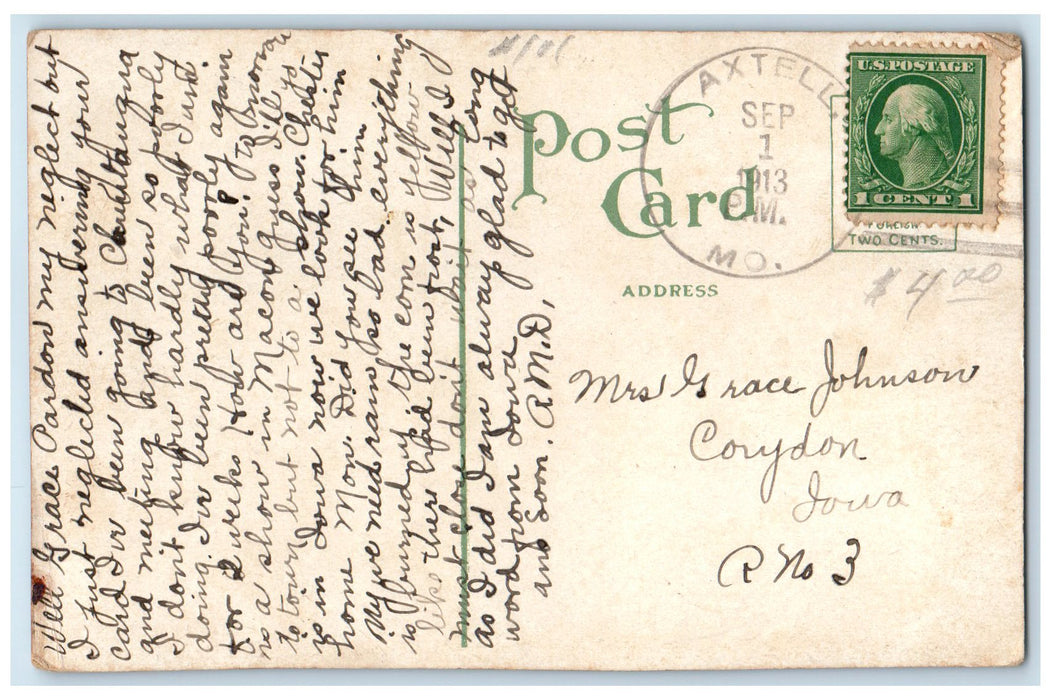 Well Grace Pardon my neglect but
I Just neglected answering your
card I'v been going to Chautauqua
and meeting and been so poorly
I don't know hardly what I want.
doing I'v been pretty poorly again
for 2 weeks How are you? To morrow
is a show in Macon guess I'll go
to town but not to a show. Chester
is in Iowa now we look for him
home Mon. Did you see him
My we need rain so bad everything
is burned up the corn is yellow
like there had been frost, Well I
must close don't wait as long
as I did I am alway glad to get
word from Iowa
ans Soon. R.M.D,
Post
Card
ADDRESS
AXTELL
SEP
1
1913
P.M.
MO.
U.S. POSTAGE
1 CENT 1
FOREIGN
TWO CENTS.
$4.00
Mrs Grace Johnson
Corydon
Iowa
R No 3